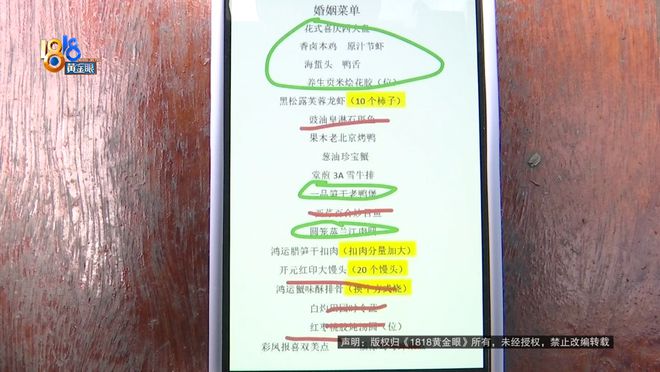 1818
黄金眼
婚姻菜单
花式喜庆四头盘
香卤本鸡 原汁节虾
海蜇头 鸭舌
养生贡米烩花胶（位）
黑松露芙蓉龙虾（10个柿子）
豉油皇淋石斑鱼
果木老北京烤鸭
葱油珍宝蟹
堂煎3A雪牛排
一品笋干老鸭煲
圆笼蒸兰江肉圆
鸿运腊笋干扣肉（扣肉分量加大）
开元红印大馒头（20个馒头）
鸿运蟹味酥排骨（换个方式烧）
白灼田园时令蔬
红枣桃胶炖汤圆（位）
彩凤报喜双美点
声明：版权归《1818黄金眼》所有，未经授权，禁止改编转载